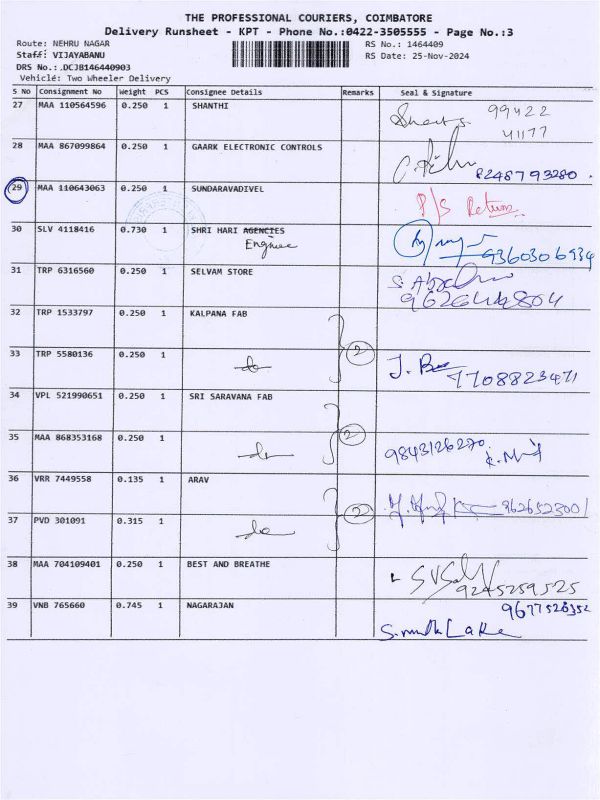 THE PROFESSIONAL COURIERS, COIMBATORE
Delivery Runsheet - KPT - Phone No.:0422-3505555 - Page No.:3
Route: NEHRU NAGAR RS No.: 1464409
Staff: VIJAYABANU RS Date: 25-Nov-2024
DRS No.:.DCJB146440903
Vehicle: Two Wheeler Delivery
S No Consignment No Weight PCS Consignee Details Remarks Seal & Signature
27 MAA 110564596 0.250 1 SHANTHI 99422
41177
28 MAA 867099864 0.250 1 GAARK ELECTRONIC CONTROLS 8248793280.
29 MAA 110643063 0.250 1 SUNDARAVADIVEL P/S Return
30 SLV 4118416 0.730 1 SHRI HARI AGENCIES 9360306934
31 TRP 6316560 0.250 1 SELVAM STORE
9626444804
32 TRP 1533797 0.250 1 KALPANA FAB
33 TRP 5580136 0.250 1 do 2 7708823471
34 VPL 521990651 0.250 1 SRI SARAVANA FAB
35 MAA 868353168 0.250 1 do 2 9843126270
36 VRR 7449558 0.135 1 ARAV
37 PVD 301091 0.315 1 do 2 9626523001
38 MAA 704109401 0.250 1 BEST AND BREATHE 9245259525
39 VNB 765660 0.745 1 NAGARAJAN 9677526352